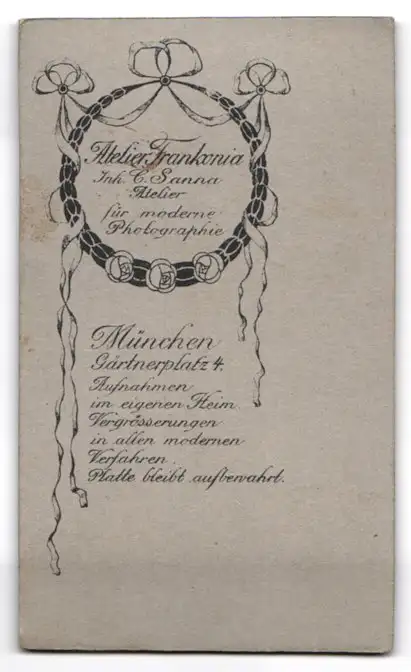 Atelier Frankonia
Inh. C. Sanna
Atelier
für moderne
Photographie
München
Gärtnerplatz 4.
Aufnahmen
im eigenen Heim
Vergrösserungen
in allen modernen
Verfahren.
Platte bleibt aufbewahrt.